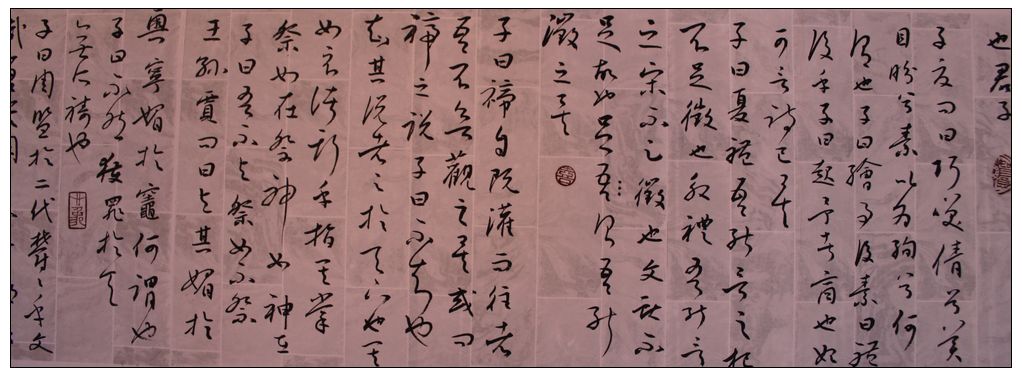 也君子
子夏问曰巧笑倩兮美
目盼兮素以为绚兮何
谓也子曰繪事後素曰禮
後乎子曰起予者商也始
可言诗已矣
子曰夏禮吾能言之杞
不足徵也殷禮吾能言
之宋不足徵也文献不
足故也足吾则吾能
徵之矣
子曰禘自既灌而往者
吾不欲觀之矣或问
禘之说子曰不知也
知其说者之於天下也其
如示诸斯乎指其掌
祭如在祭神如神在
子曰吾不与祭如不祭
王孙賈问曰与其媚於
奥寧媚於竈何謂也
子曰不然獲罪於天
无所祷也
子曰周监於二代鬱鬱乎文